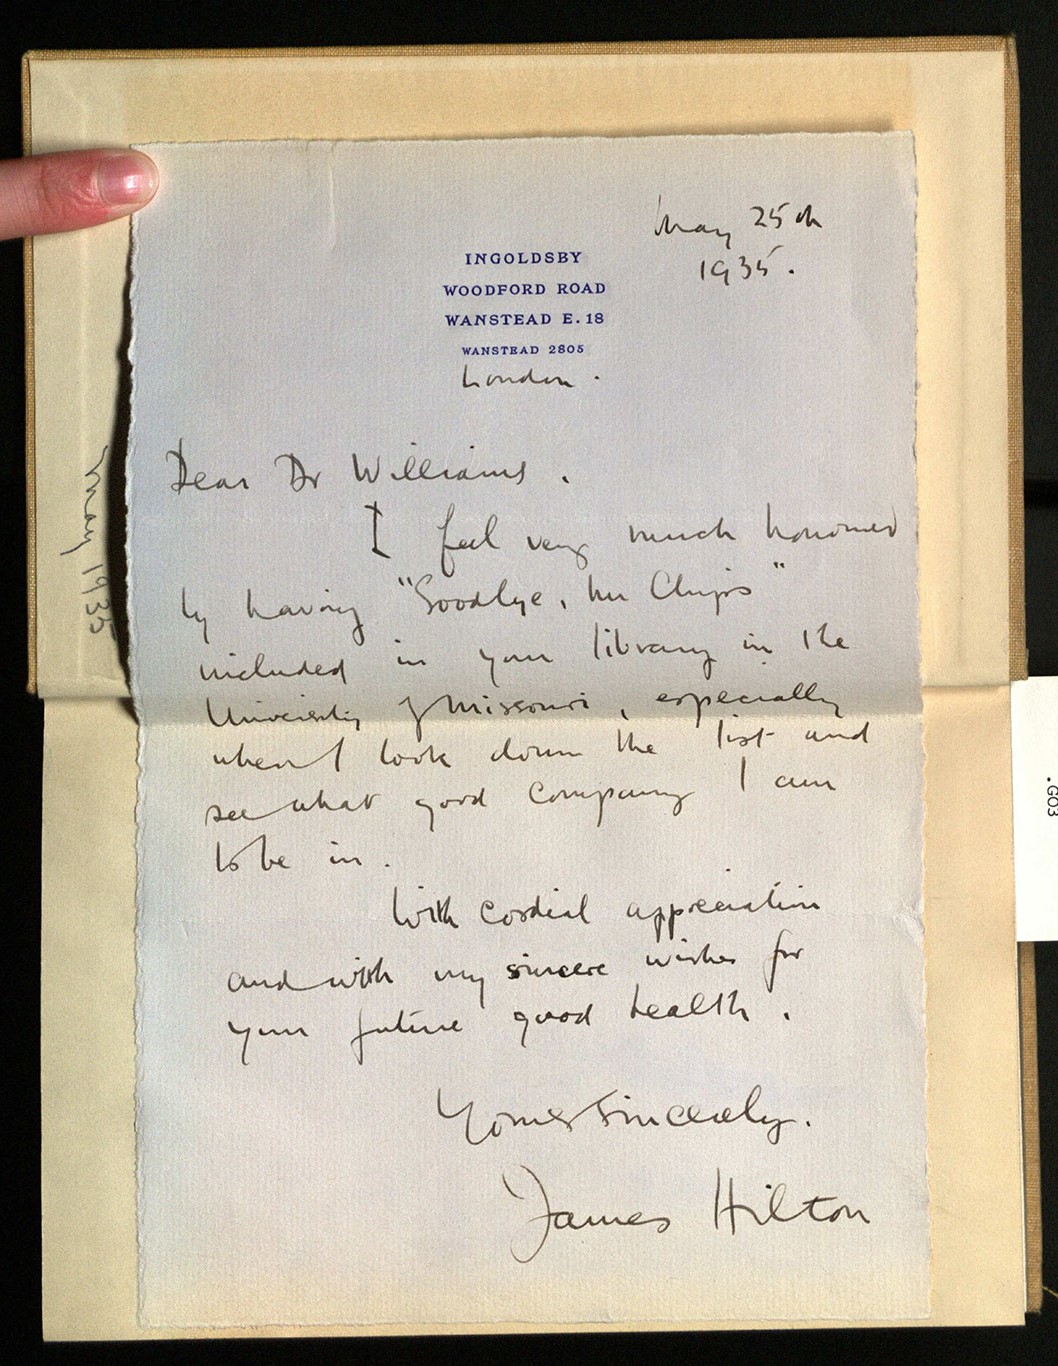 May 25th
1935.
INGOLDSBY
WOODFORD ROAD
WANSTEAD E.18
WANSTEAD 2805
London.
Dear Dr Williams.
I feel very much honoured
by having "Goodbye, Mr Chips"
included in your library in the
University of Missouri, especially
when I look down the list and
see what good company I am
to be in.
With cordial appreciation
and with my sincere wishes for
your future good health.
Yours sincerely.
James Hilton
May 1935
.G03